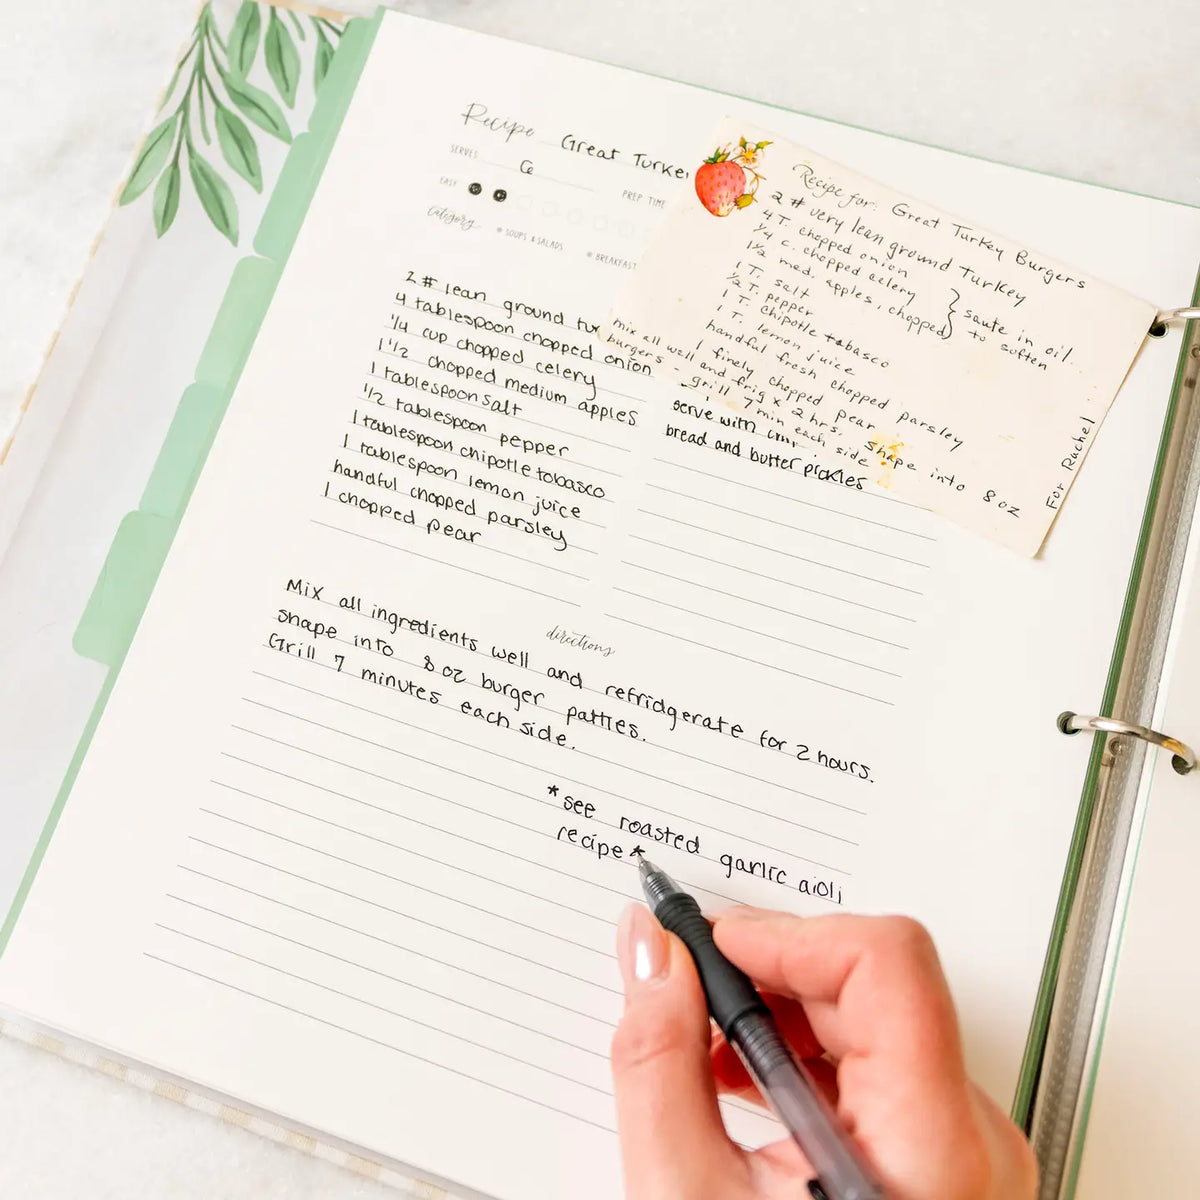 Recipe Great Turke
SERVES 6
PREP TIME
EASY
category
SOUPS & SALADS
BREAKFAST
2 # lean ground tur
4 tablespoon chopped onion
1/4 cup chopped celery
1 1/2 chopped medium apples
1 tablespoon salt
1/2 tablespoon pepper
1 tablespoon chipotle tobasco
1 tablespoon lemon juice
handful chopped parsley
1 chopped pear
serve with
bread and butter pickles
directions
Mix all ingredients well and refridgerate for 2 hours.
shape into 8 oz burger patties.
Grill 7 minutes each side.
*see roasted garlic aioli
recipe*
Recipe for: Great Turkey Burgers
2 # very lean ground Turkey
4 T. chopped onion
1/4 c. chopped celery
1 1/2 med. apples, chopped
} saute in oil
to soften
1 T. salt
1/2 T. pepper
1 T. chipotle tabasco
1 T. lemon juice
handful fresh chopped parsley
1 finely chopped pear
mix all well and frig x 2 hrs. shape into 8 oz
burgers - grill 7 min each side
For Rachel